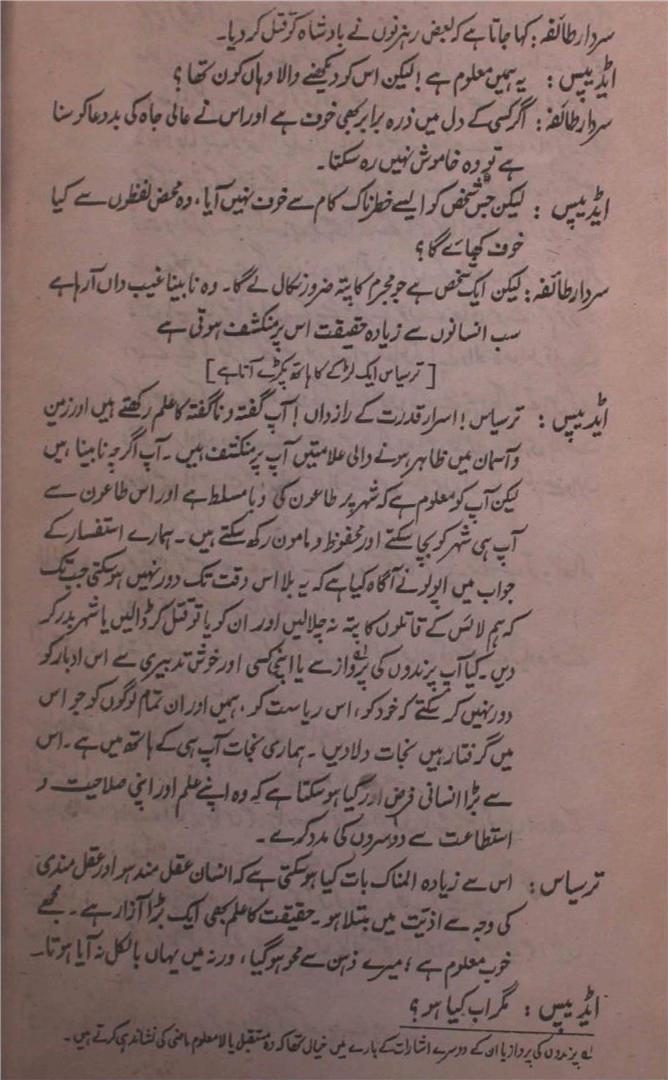 سردار طائفہ: کہا جاتا ہے کہ بعض رہزنوں نے بادشاہ کو قتل کر دیا۔
ایڈیپس: یہ ہمیں معلوم ہے! لیکن اس کو دیکھنے والا وہاں کون تھا؟
سردار طائفہ: اگر کسی کے دل میں ذرہ برابر بھی خوف ہے اور اس نے عالی جاہ کی بددعا کو سنا
ہے تو وہ خاموش نہیں رہ سکتا۔
ایڈیپس: لیکن جس شخص کو ایسے خطرناک کام سے خوف نہیں آیا، وہ محض لفظوں سے کیا
خوف کھائے گا؟
سردار طائفہ: لیکن ایک شخص ہے جو مجرم کا پتہ ضرور نکال لے گا۔ وہ نابینا غیب داں آ رہا ہے
سب انسانوں سے زیادہ حقیقت اس پر منکشف ہوتی ہے
[ترسیاس ایک لڑکے کا ہاتھ پکڑے آتا ہے]
ایڈیپس: ترسیاس! اسرار قدرت کے رازداں! آپ گفتہ و ناگفتہ کا علم رکھتے ہیں اور زمین
و آسمان میں ظاہر ہونے والی علامتیں آپ پر منکشف ہیں۔ آپ اگرچہ نابینا ہیں
لیکن آپ کو معلوم ہے کہ شہر پر طاعون کی وبا مسلط ہے اور اس طاعون سے
آپ ہی شہر کو بچا سکتے اور محفوظ و مامون رکھ سکتے ہیں۔ ہمارے استفسار کے
جواب میں اپولو نے آگاہ کیا ہے کہ یہ بلا اس وقت تک دور نہیں ہو سکتی جب تک
کہ ہم لائس کے قاتلوں کا پتہ نہ چلا لیں اور ان کو یا تو قتل کر ڈالیں یا شہر بدر کر
دیں۔ کیا آپ پرندوں کی پرواز لہ سے یا اپنی کسی اور خوش تدبیری سے اس ادبار کو
دور نہیں کر سکتے کہ خود کو، اس ریاست کو، ہمیں اور ان تمام لوگوں کو جو اس
میں گرفتار ہیں نجات دلا دیں۔ ہماری نجات آپ ہی کے ہاتھ میں ہے۔ اس
سے بڑا انسانی فرض اور کیا ہو سکتا ہے کہ وہ اپنے علم اور اپنی صلاحیت و
استطاعت سے دوسروں کی مدد کرے۔
ترسیاس: اس سے زیادہ المناک بات کیا ہو سکتی ہے کہ انسان عقل مند ہو اور عقل مندی
کی وجہ سے اذیّت میں مبتلا ہو۔ حقیقت کا علم بھی ایک بڑا آزار ہے۔ مجھے
خوب معلوم ہے؛ میرے ذہن سے محو ہو گیا، ورنہ میں یہاں بالکل نہ آیا ہوتا۔
ایڈیپس: مگر اب کیا ہو؟
لہ پرندوں کی پرواز یا ان کے دوسرے اشارات کے بارے میں خیال تھا کہ وہ مستقبل یا لامعلوم ماضی کی نشاندہی کرتے ہیں۔